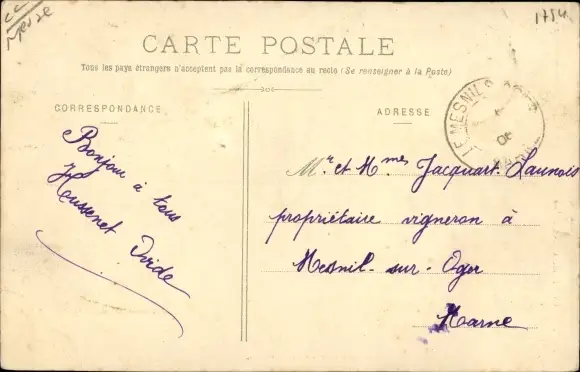 1754
CARTE POSTALE
Tous les pays étrangers n'acceptent pas la correspondance au recto (Se renseigner à la Poste)
CORRESPONDANCE
ADRESSE
Bonjour à tous
Houssenet Ovide
Mr et Mmes Jacquart-Launois
propriétaire vigneron à
Mesnil-sur-Oger
Marne
LE MESNIL S OGER
MARNE